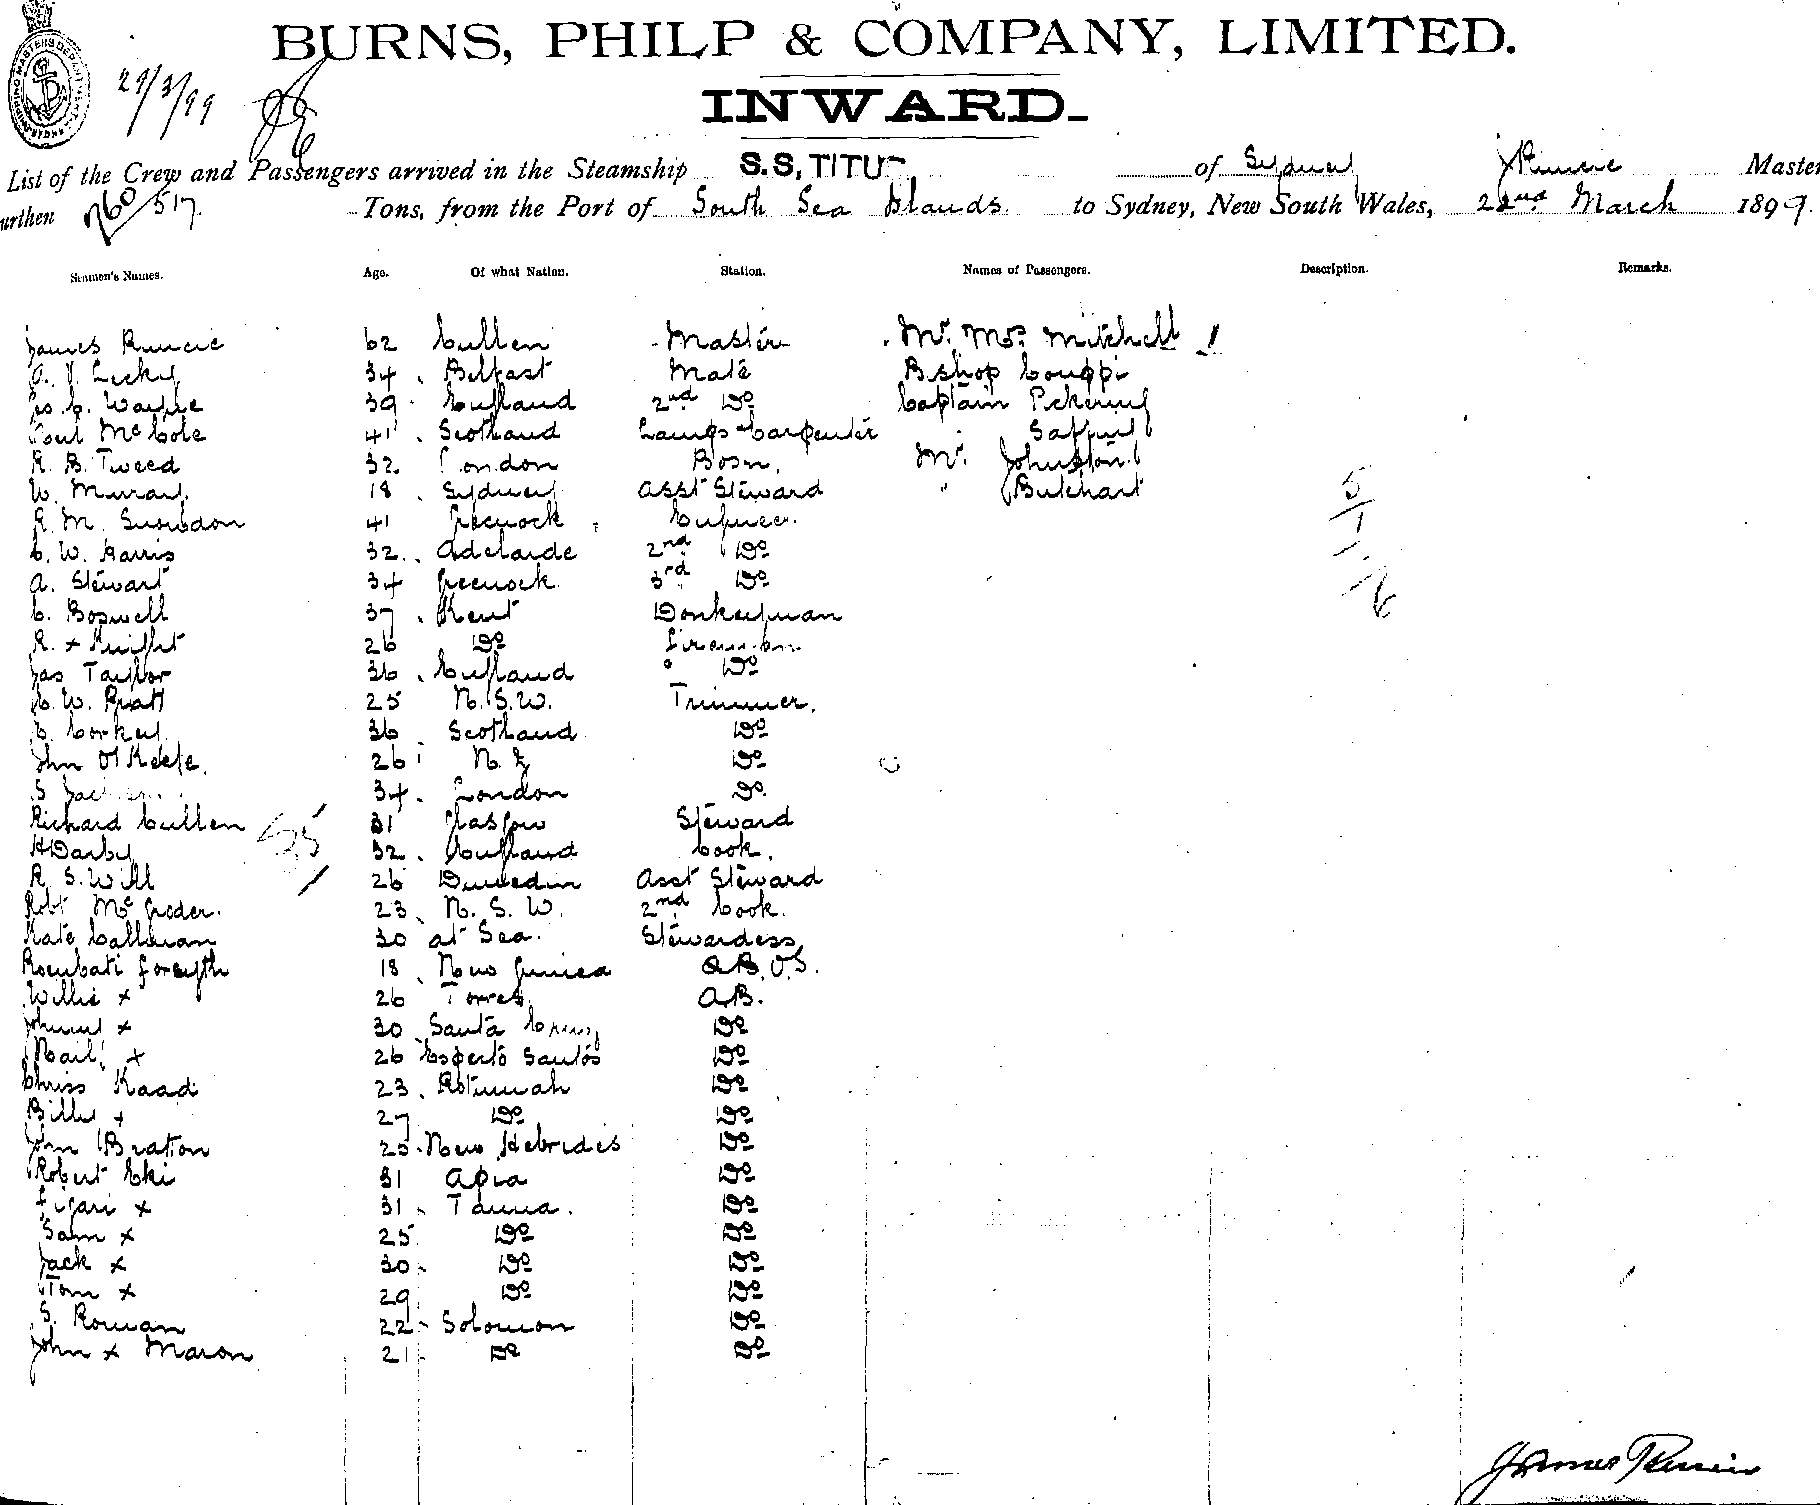 BURNS, PHILP & COMPANY, LIMITED.
29/3/99
INWARD.
List of the Crew and Passengers arrived in the Steamship S.S. TITU of Sydney J Runcie Master
urthen 760/517 Tons, from the Port of South Sea Islands to Sydney, New South Wales, 22nd March 1899.
Seamen's Names. Age. Of what Nation. Station. Names of Passengers. Description. Remarks.
James Runcie 62 Cullen Master Mr. Mrs Mitchell 1
Lecky 34 Belfast Mate Bishop Couppi
C. Wayne 39 England 2nd Do Captain Pickering
McCole 41 Scotland Lamps Carpenter
R. B. Tweed 32 London Bosn. Mr. Johnston
W. Murray 18 Sydney Asst Steward " Butchart
R. M. Snowdon 41 Greenock Engineer.
C. W. Harris 32 Adelaide 2nd Do
A. Stewart 34 Greenock 3rd Do
C. Boswell 37 Kent Donkeyman
R. x Knight 26 Do Fireman
Jas Taylor 36 England Do
C. W. Pratt 25 N.S.W. Trimmer.
C. Corkey 36 Scotland Do
John O'Keefe. 26 N. Z Do
S 34 London Do
Richard Cullen 31 Glasgow Steward
H Darby 32 England Cook.
R S. Will 26 Dunedin Asst Steward
Robt McGroder. 23 N. S. W. 2nd Cook.
Kate Callinan 30 at Sea. Stewardess
Forsyth 18 New Guinea A.B. O.S.
Willie x 26 Torres A.B.
Johnny x 30 Santa Cruz Do
x 26 Esperto Santos Do
Chriss Kaad 23 Rotumah Do
Billy x 27 Do Do
John Bratton 25 New Hebrides Do
Robert Eki 31 Apia Do
Figari x 31 Tanna. Do
Sam x 25 Do Do
Jack x 30 Do Do
Tom x 29 Do Do
S. Rowan 22 Solomon Do
John x Maron 21 Do Do
James Runcie